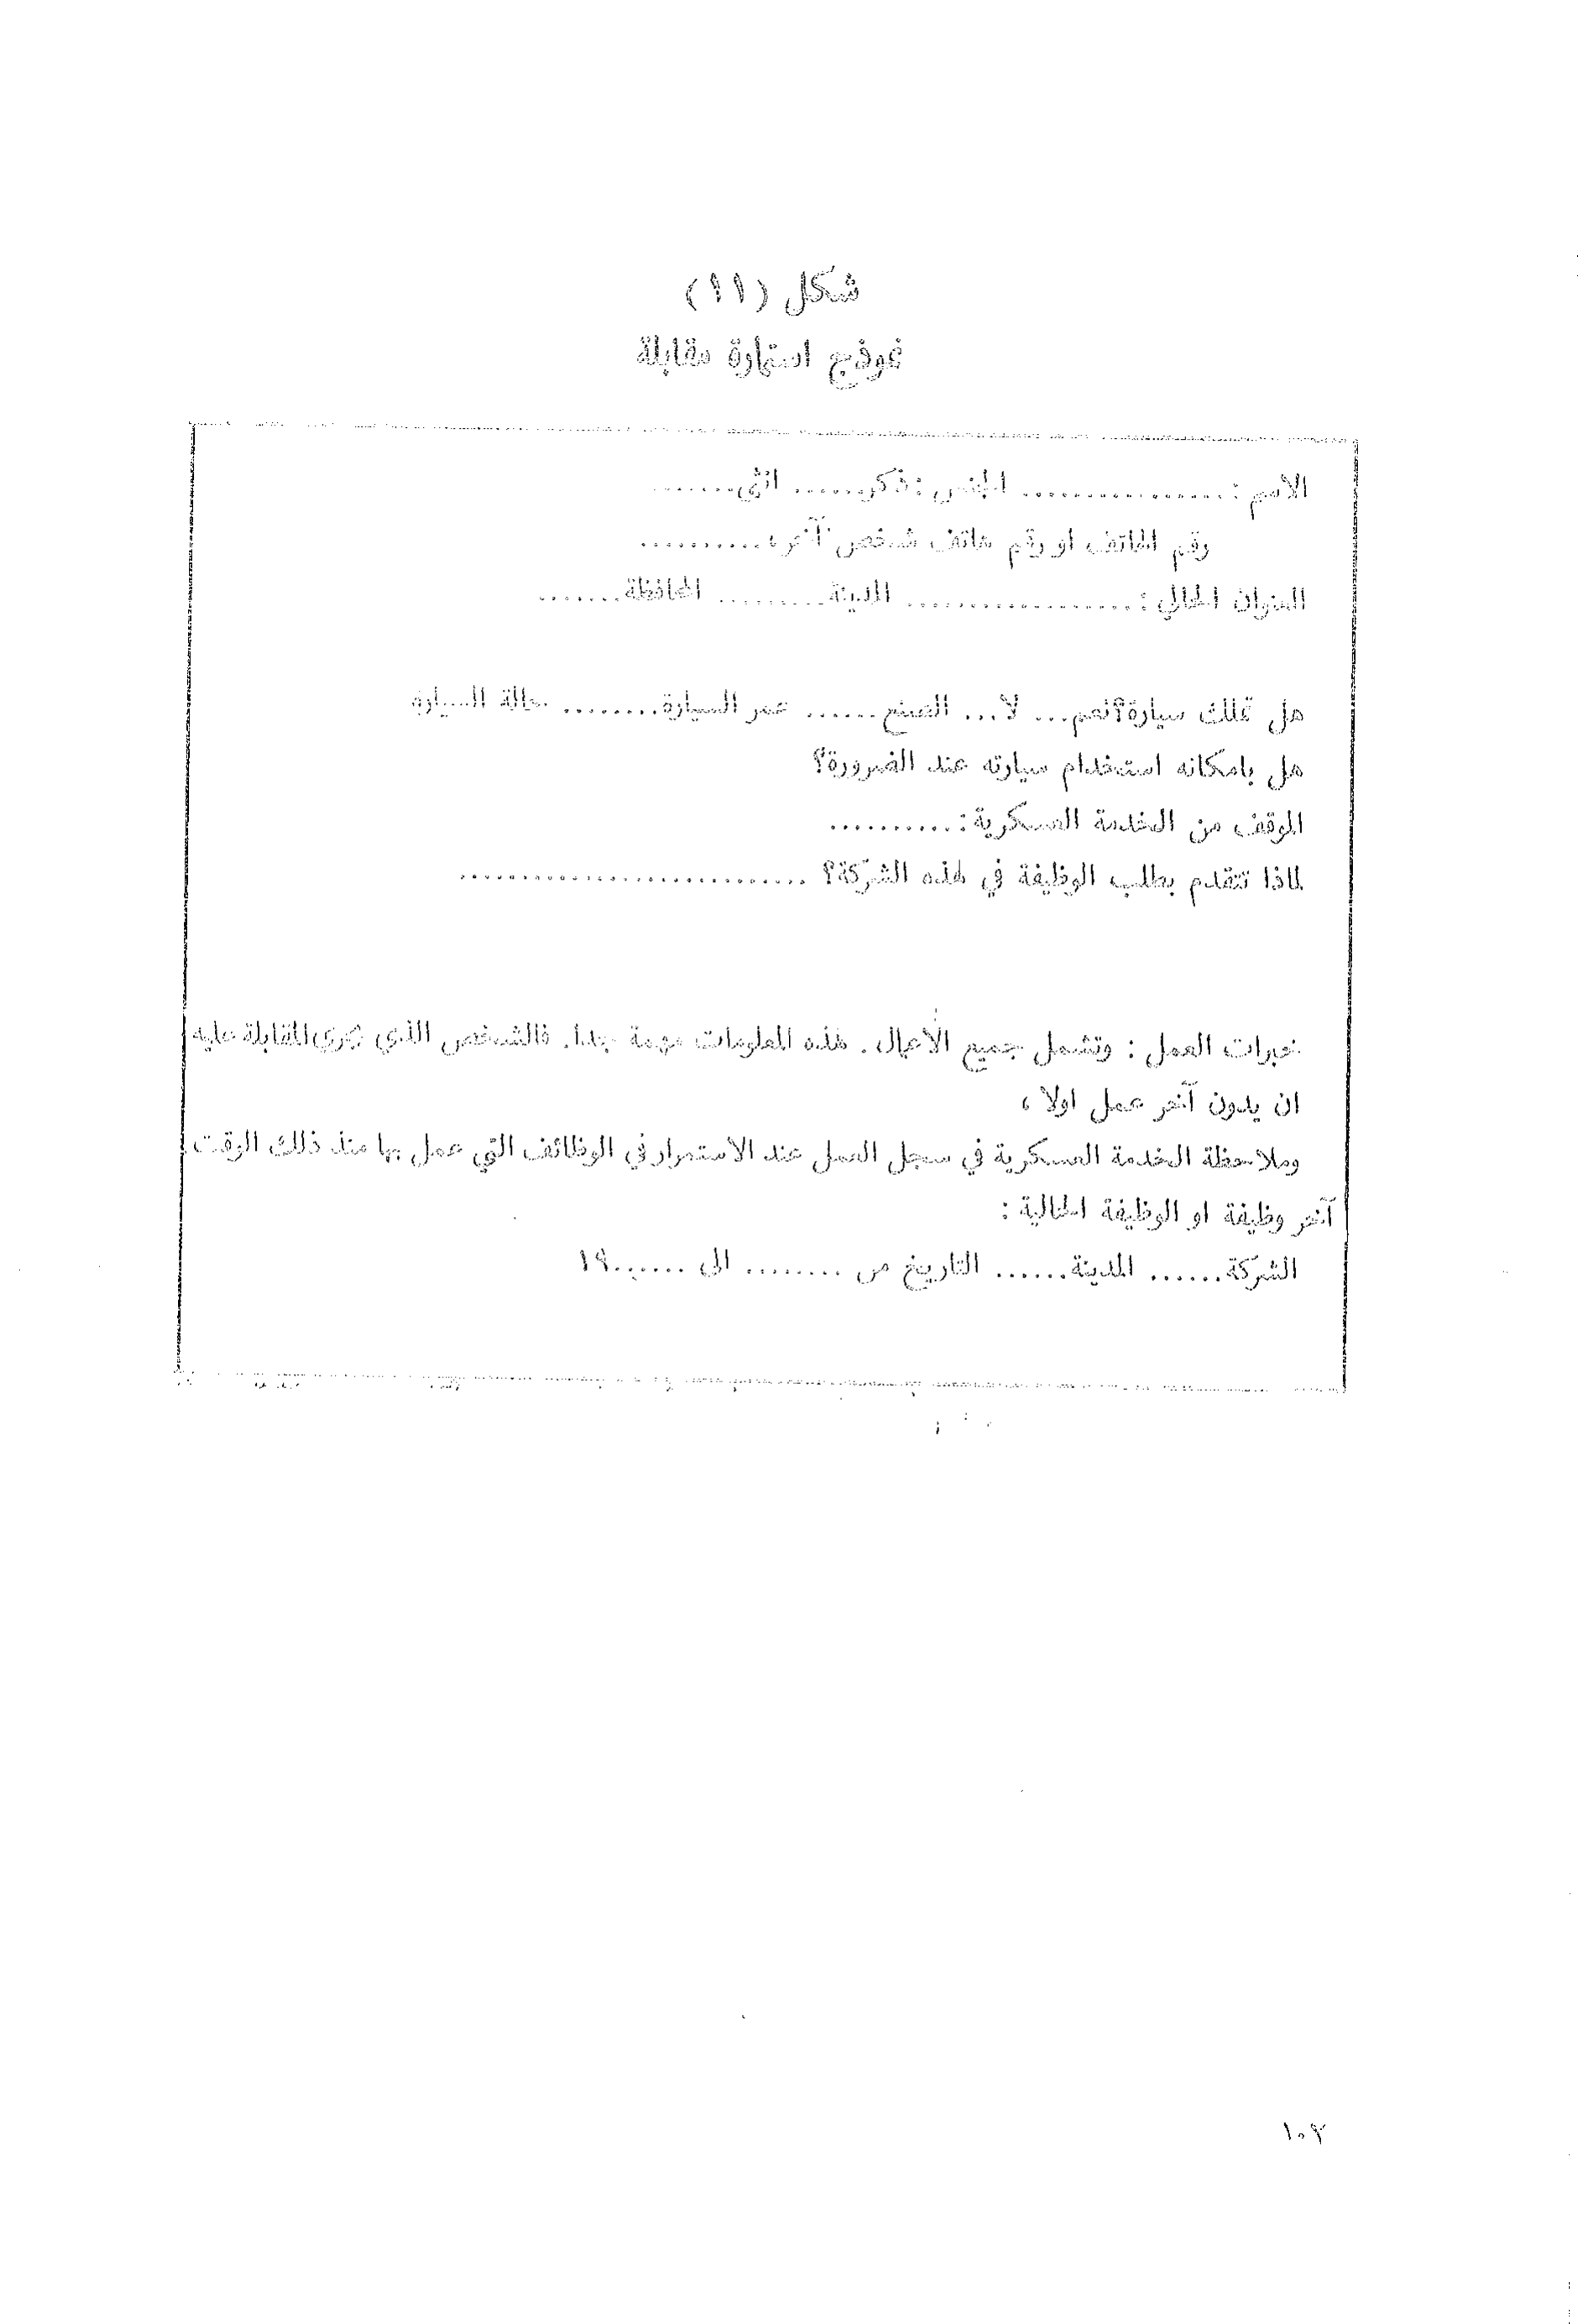 شكل (١١)
نموذج استمارة مقابلة
الاسم : ................. الجنس : ذكر....... انثى.......
رقم الهاتف او رقم هاتف شخص آخر ..........
العنوان الحالي : ................... المدينة......... المحافظة.......
هل تملك سيارة؟ نعم... لا... الصنع...... عمر السيارة........ حالة السيارة
هل بامكانه استخدام سيارته عند الضرورة؟
الموقف من الخدمة العسكرية : ..........
لماذا تتقدم بطلب الوظيفة في هذه الشركة؟ ............................
خبرات العمل : وتشمل جميع الأعمال . هذه المعلومات مهمة جدا . فالشخص الذي تجرى المقابلة عليه
ان يدون آخر عمل اولا ،
وملاحظة الخدمة العسكرية في سجل العمل عند الاستمرار في الوظائف التي عمل بها منذ ذلك الوقت .
آخر وظيفة او الوظيفة الحالية :
الشركة...... المدينة...... التاريخ من ........ الى ......١٩
١٠٢